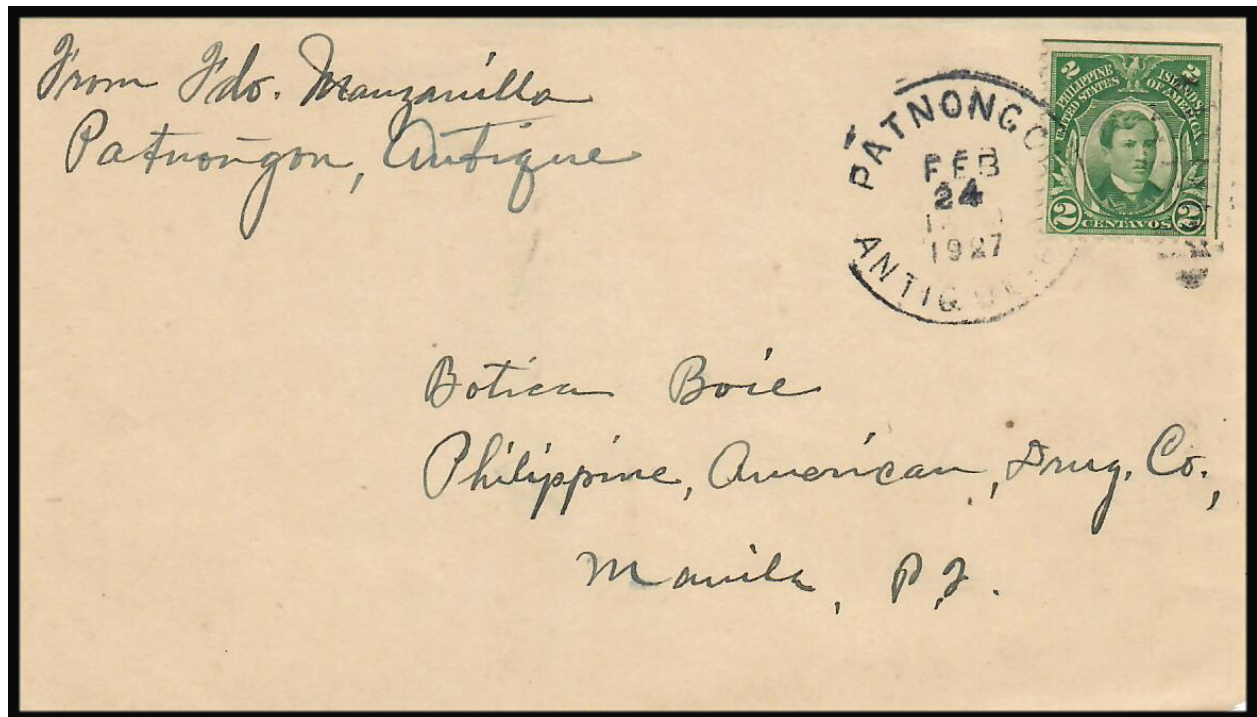 From Fdo. Manzanilla
Patnoñgon, Antique
PATNONGO
FEB
24
1927
ANTIQUE
2 2
PHILIPPINE ISLANDS
UNITED STATES OF AMERICA
2 CENTAVOS 2
Botica Boie
Philippine, American, Drug, Co.,
Manila, P.I.